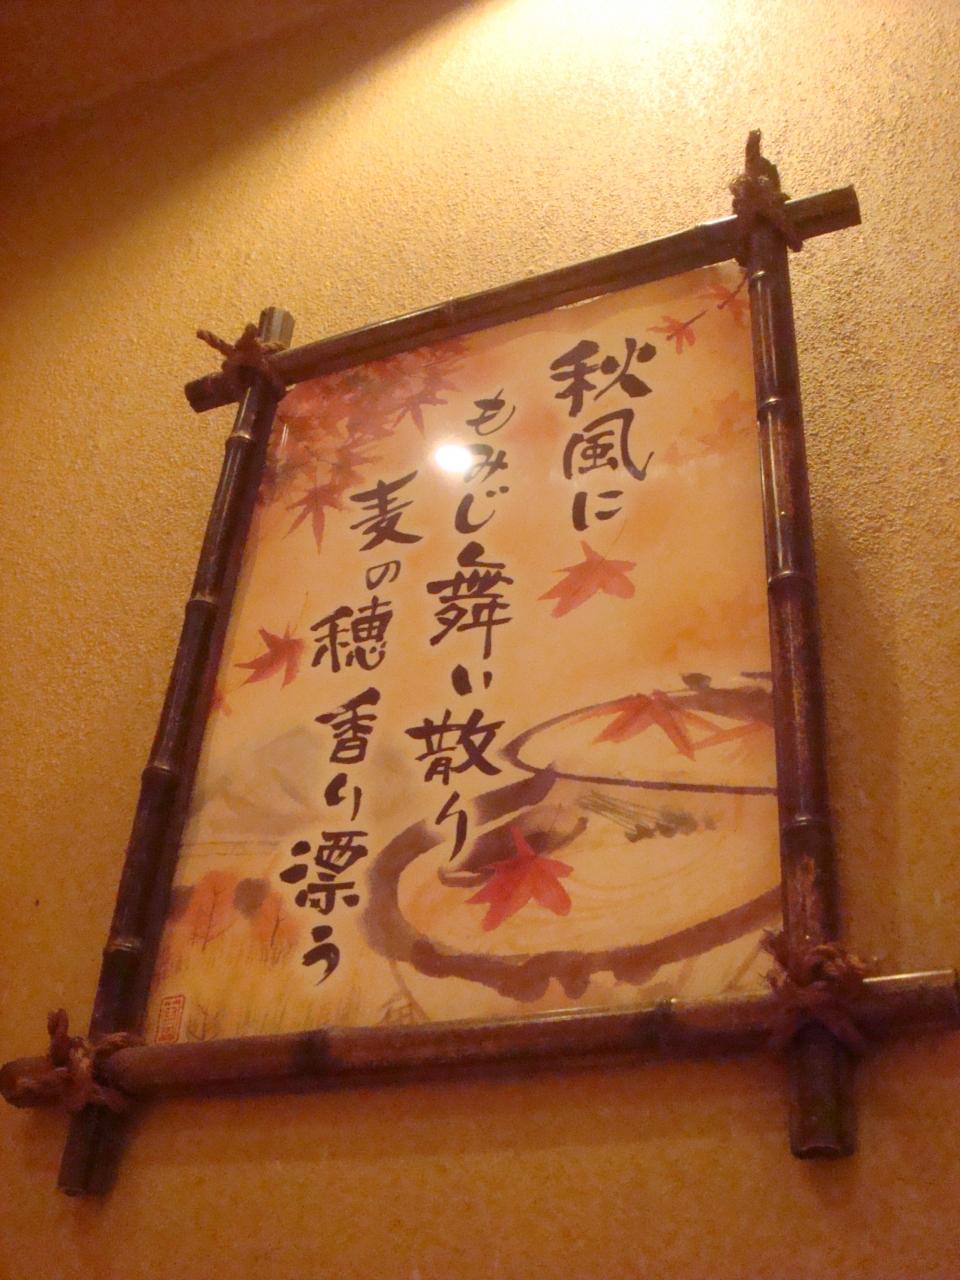 秋風に
もみじ舞い散り
麦の穂香り漂う